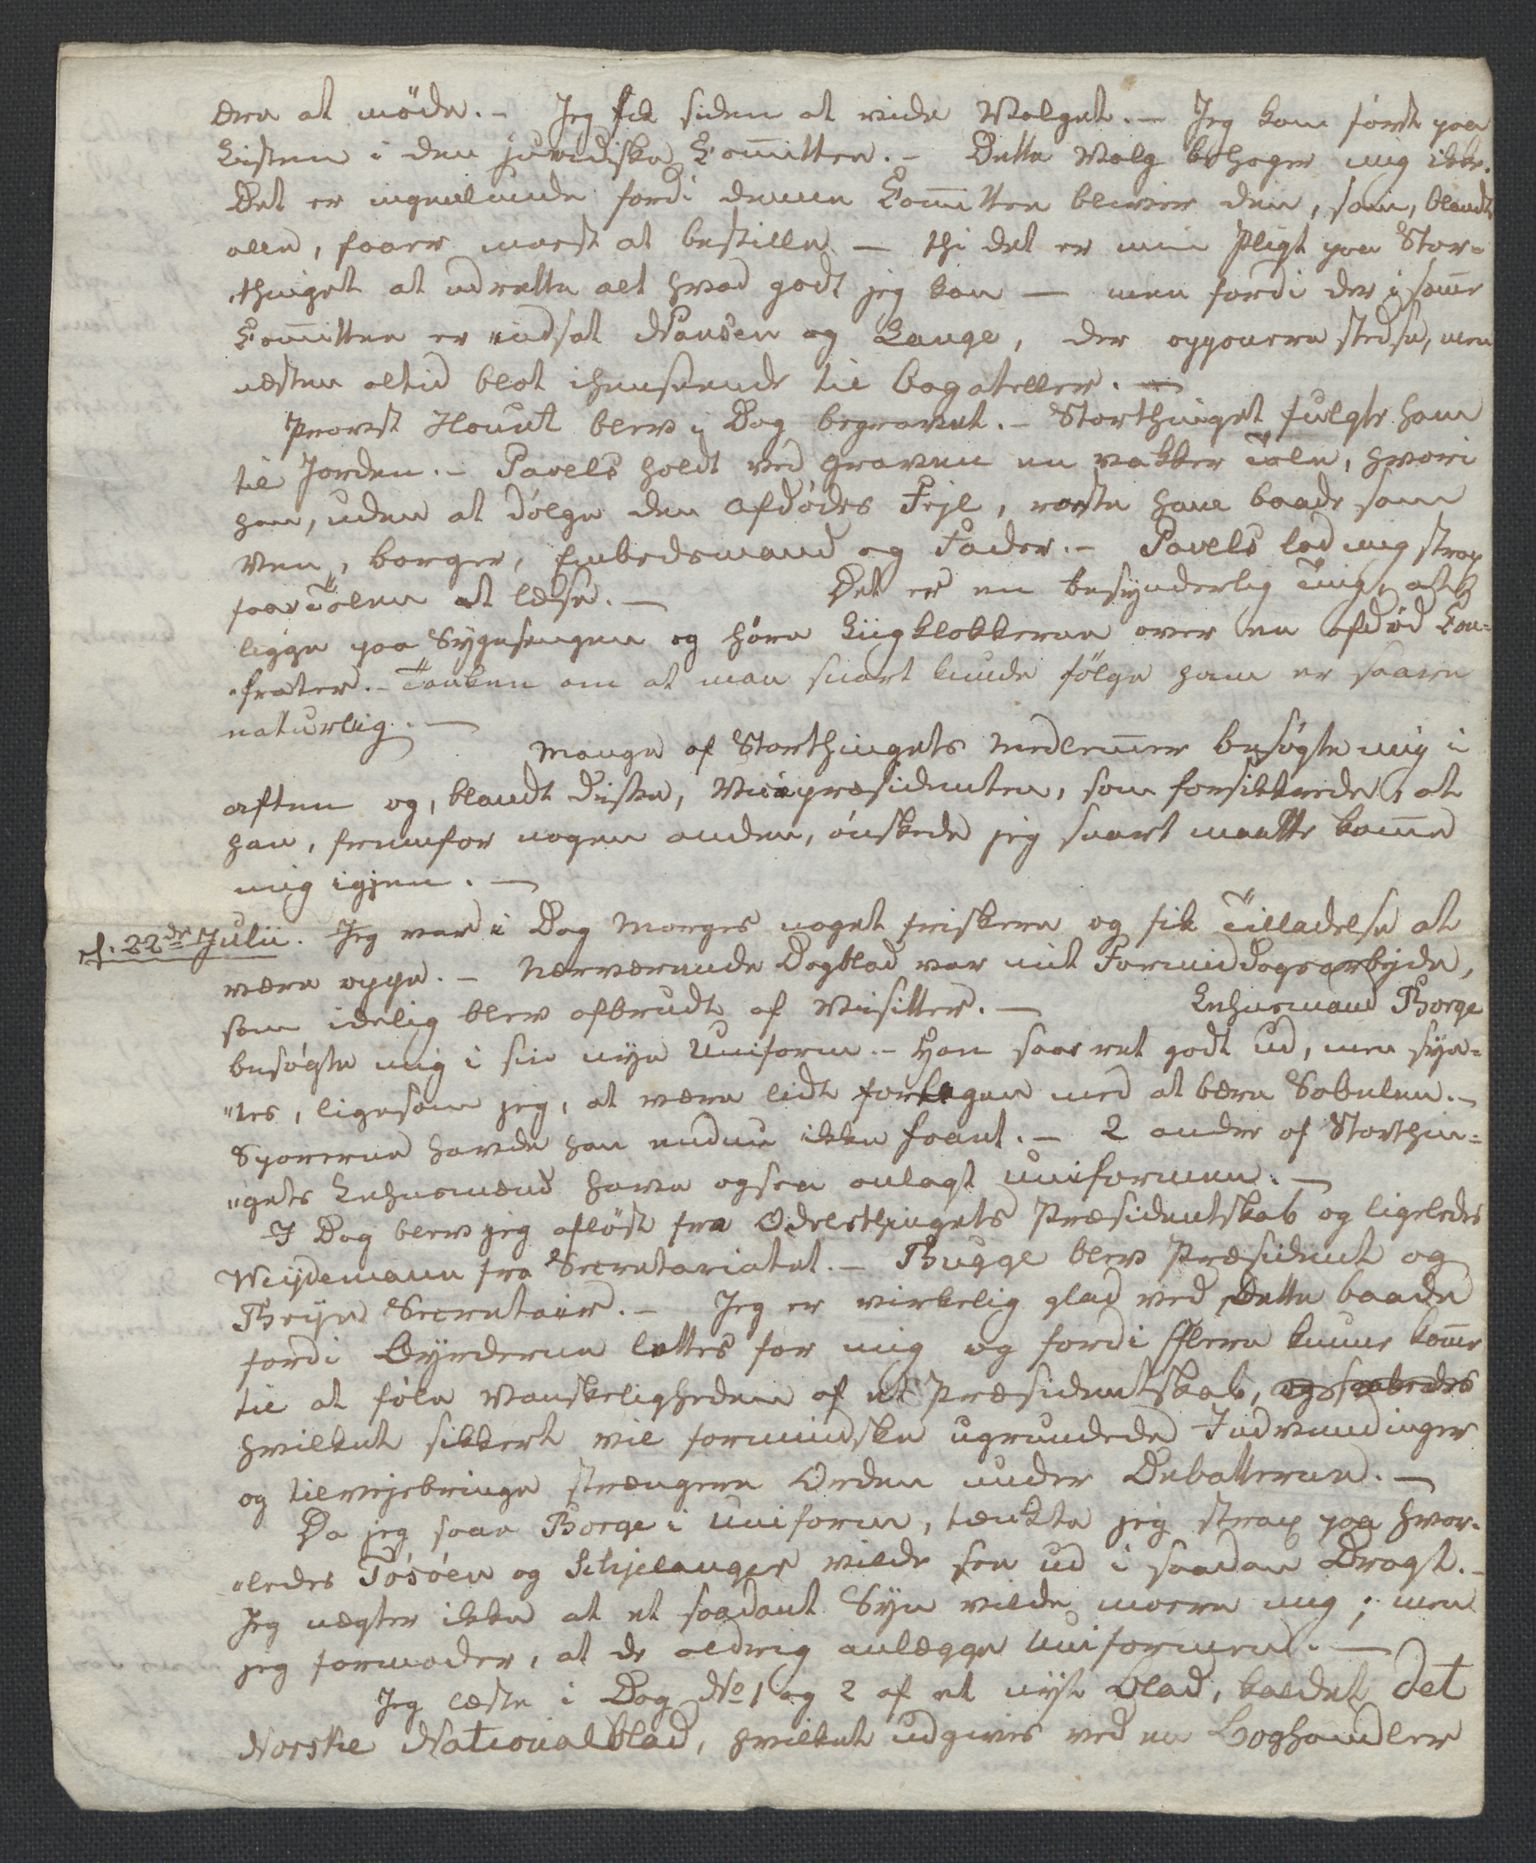 dere at møde.- Jeg fik siden at vide Valget.- Jeg kom først paa
Listen i den juridiske Committee.- Dette Valg behager mig ikke.
Det er ingenlunde fordi denne Committee bliver den, som, blandt
alle, faaer meest at bestille - thi det er min Pligt paa Stor-
thinget at udrette alt hvad godt jeg kan - men fordi der i samme
Committee er indsat Nansen og Lange, der opponere stedse, men
næsten altid blot ihenseende til bagateller.-
Provst Hount blev i Dag begravet.- Storthinget fulgte ham
til Jorden.- Pavels holdt ved Graven en vakker Tale, hvori
han, uden at dølge den Afdødes Fejl, roeste ham baade som
Ven, borger, Embedsmand og Fader.- Pavels lod mig strax
faae Talen at læse.- Det er en besynderlig Ting, at
ligge paa Sygesengen og høre Liigklokkerne over en afdød Con-
frater.- Tanken om at man snart kunde følge ham er saare
naturlig.-
Mange af Storthingets Medlemmer besøgte mig i
aften og, blandt disse, Vicepræsidenten, som forsikkrede, at
han, fremfor nogen anden, ønskede jeg snart maatte komme
mig igjen.-
d. 22de Julii. Jeg var i Dag Morges noget friskere og fik Tilladelse at
være oppe.- Nærværende Dagblad var mit Formiddagsarbejde,
som idelig blev afbrudt af Visitter.- Lehnsmand Borge
besøgte mig i sin nye Uniform.- Han saae ret godt ud, men syn-
"tes, ligesom jeg, at være lidt forlegen med at bære Sabelen.-
Sporerne havde han endnu ikke faaet.- 2 andre af Storthin-
"gets Lehnsmænd have ogsaa anlagt Uniformen.-
I Dag blev jeg afløst fra Odelsthingets Præsidentskab og ligeledes
Weidemann fra Secretariatet.- Bugge blev Præsident og
Bryn Secretair.- Jeg er virkelig glad ved Dette baade
fordi Byrderne lettes for mig og fordi flere kunne komme
til at føle Vanskeligheden af et Præsidentskab, og saaledes
hvilket sikkert vil formindske ugrundede Indvendinger
og tilvejebringe strængere Orden under Debatterne.-
Da jeg saae Borge i Uniform, tænkte jeg strax paa hvor-
"ledes Fosøen og Schjelanger vilde see ud i saadan Dragt.-
Jeg nægter ikke at et saadant Syn vilde more mig; men
jeg formoder, at de aldrig anlægge Uniformen.-
Jeg læste i Dag No 1 og 2 af et nyt Blad, kaldet det
Norske Nationalblad, hvilket udgives ved en Boghandler